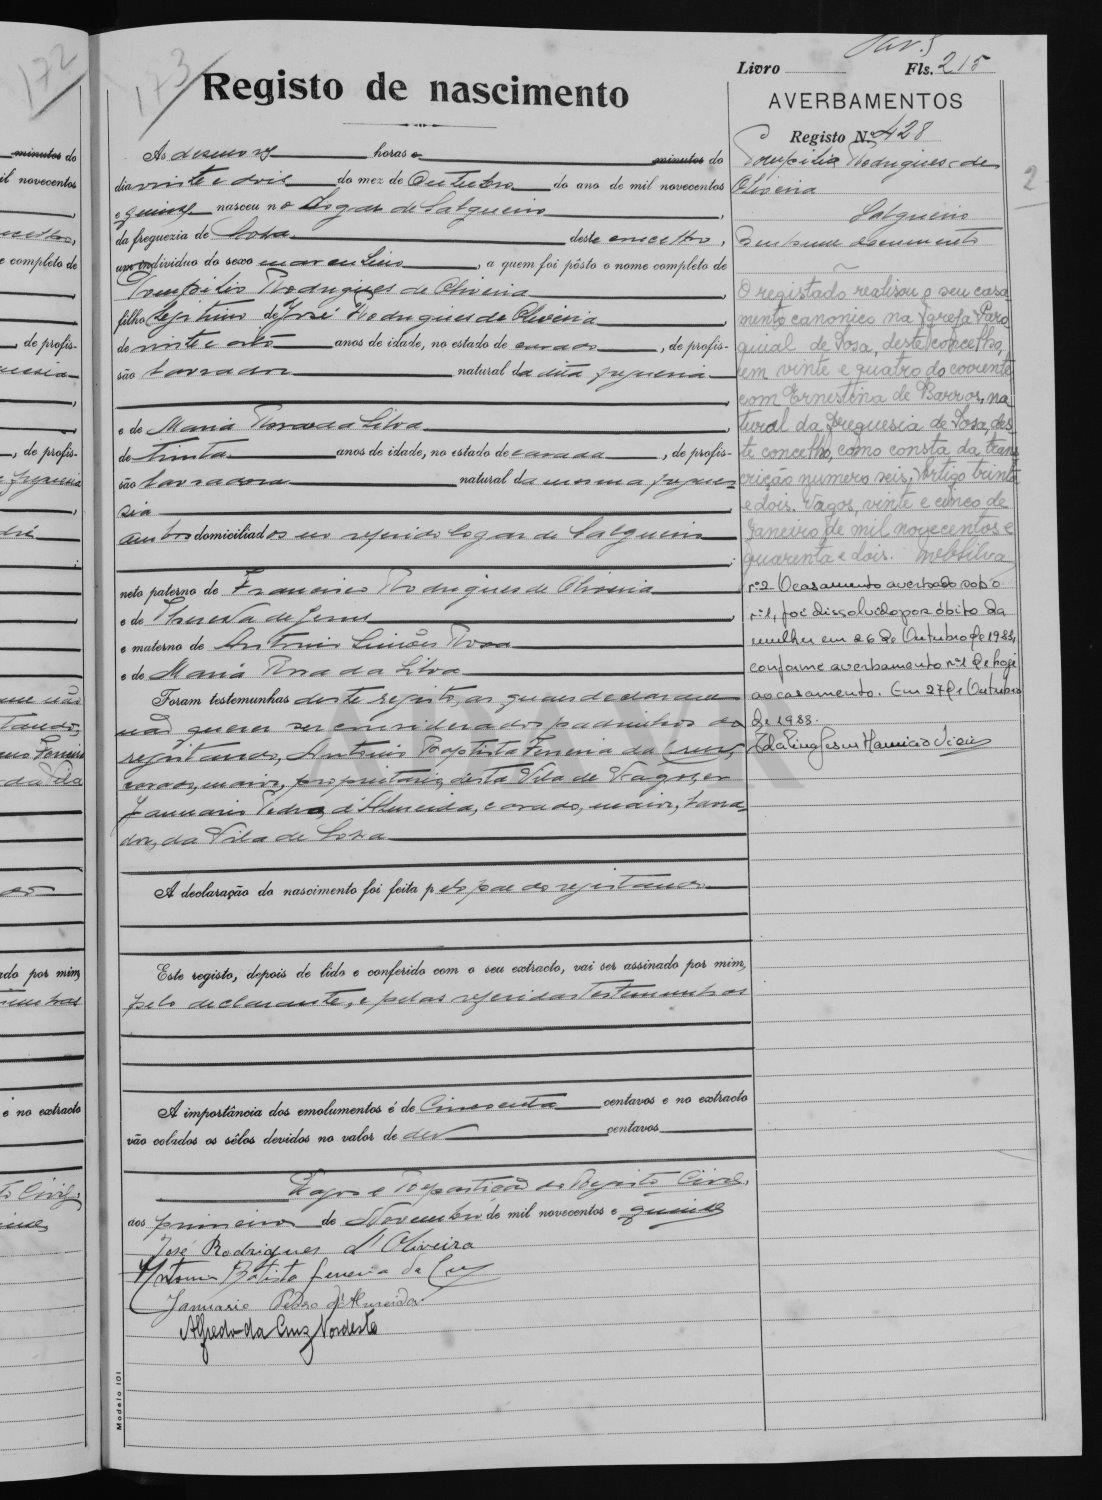 172
173
Livro Fls. 215
Registo de nascimento
AVERBAMENTOS
Registo Nº 428
Pompilio Rodrigues de
Oliveira
Salgueiro
2
Às desenove horas e minutos do
dia vinte e dois do mez de Outubro do ano de mil novecentos
e quinze nasceu no logar de Salgueiro,
da freguezia de Soza deste concelho,
um individuo do sexo masculino, a quem foi pôsto o nome completo de
Pompilio Rodrigues de Oliveira,
filho legitimo de José Rodrigues de Oliveira
de vinte e oito anos de idade, no estado de casado, de profis-
são lavrador natural da dita freguesia
e de Maria Rosa da Silva
de trinta anos de idade, no estado de casada, de profis-
são lavradora natural da mesma fregue-
sia
ambos domiciliados no referido logar de Salgueiro
neto paterno de Francisco Rodrigues de Oliveira
e de Thereza de Jesus
e materno de Antonio Simões Rosa
e de Maria Rosa da Silva
Foram testemunhas deste registo, as quaes declararam
não querer ser considerados padrinhos do
registando, Antonio Baptista Ferreira da Cruz,
casado, maior, proprietario, desta Vila de Vagos, e
Januario Pedro d'Almeida, casado, maior, lavra-
dor, da Vila de Soza
A declaração do nascimento foi feita pelo pae do registando
Este registo, depois de lido e conferido com o seu extracto, vai ser assinado por mim,
pelo declarante, e pelas referidas testemunhas
A importância dos emolumentos é de cincoenta centavos e no extracto
vão colados os sêlos devidos no valor de dez centavos
Vagos e Repartição do Registo Civil,
aos primeiro de Novembro de mil novecentos e quinze
José Rodrigues d'Oliveira
Antonio Batista Ferreira da Cruz
Januario Pedro d'Almeida
Alfredo da Cruz Nordeste
O registado realisou o seu casa-
mento canonico na Igreja Paro-
quial de Sosa, deste concelho,
em vinte e quatro do corrente
com Ernestina de Barros, na-
tural da freguesia de Sosa, des-
te concelho, como consta da trans-
crição numero seis, Artigo trinta
e dois. Vagos, vinte e cinco de
Janeiro de mil novecentos e
quarenta e dois.
nº 2 O casamento averbado sob o
nº 1, foi dissolvido por óbito da
mulher em 26 de Outubro de 1988,
conforme averbamento nº 1 de hoje
ao casamento. Em 27 de Outubro
de 1988.
Modelo 101